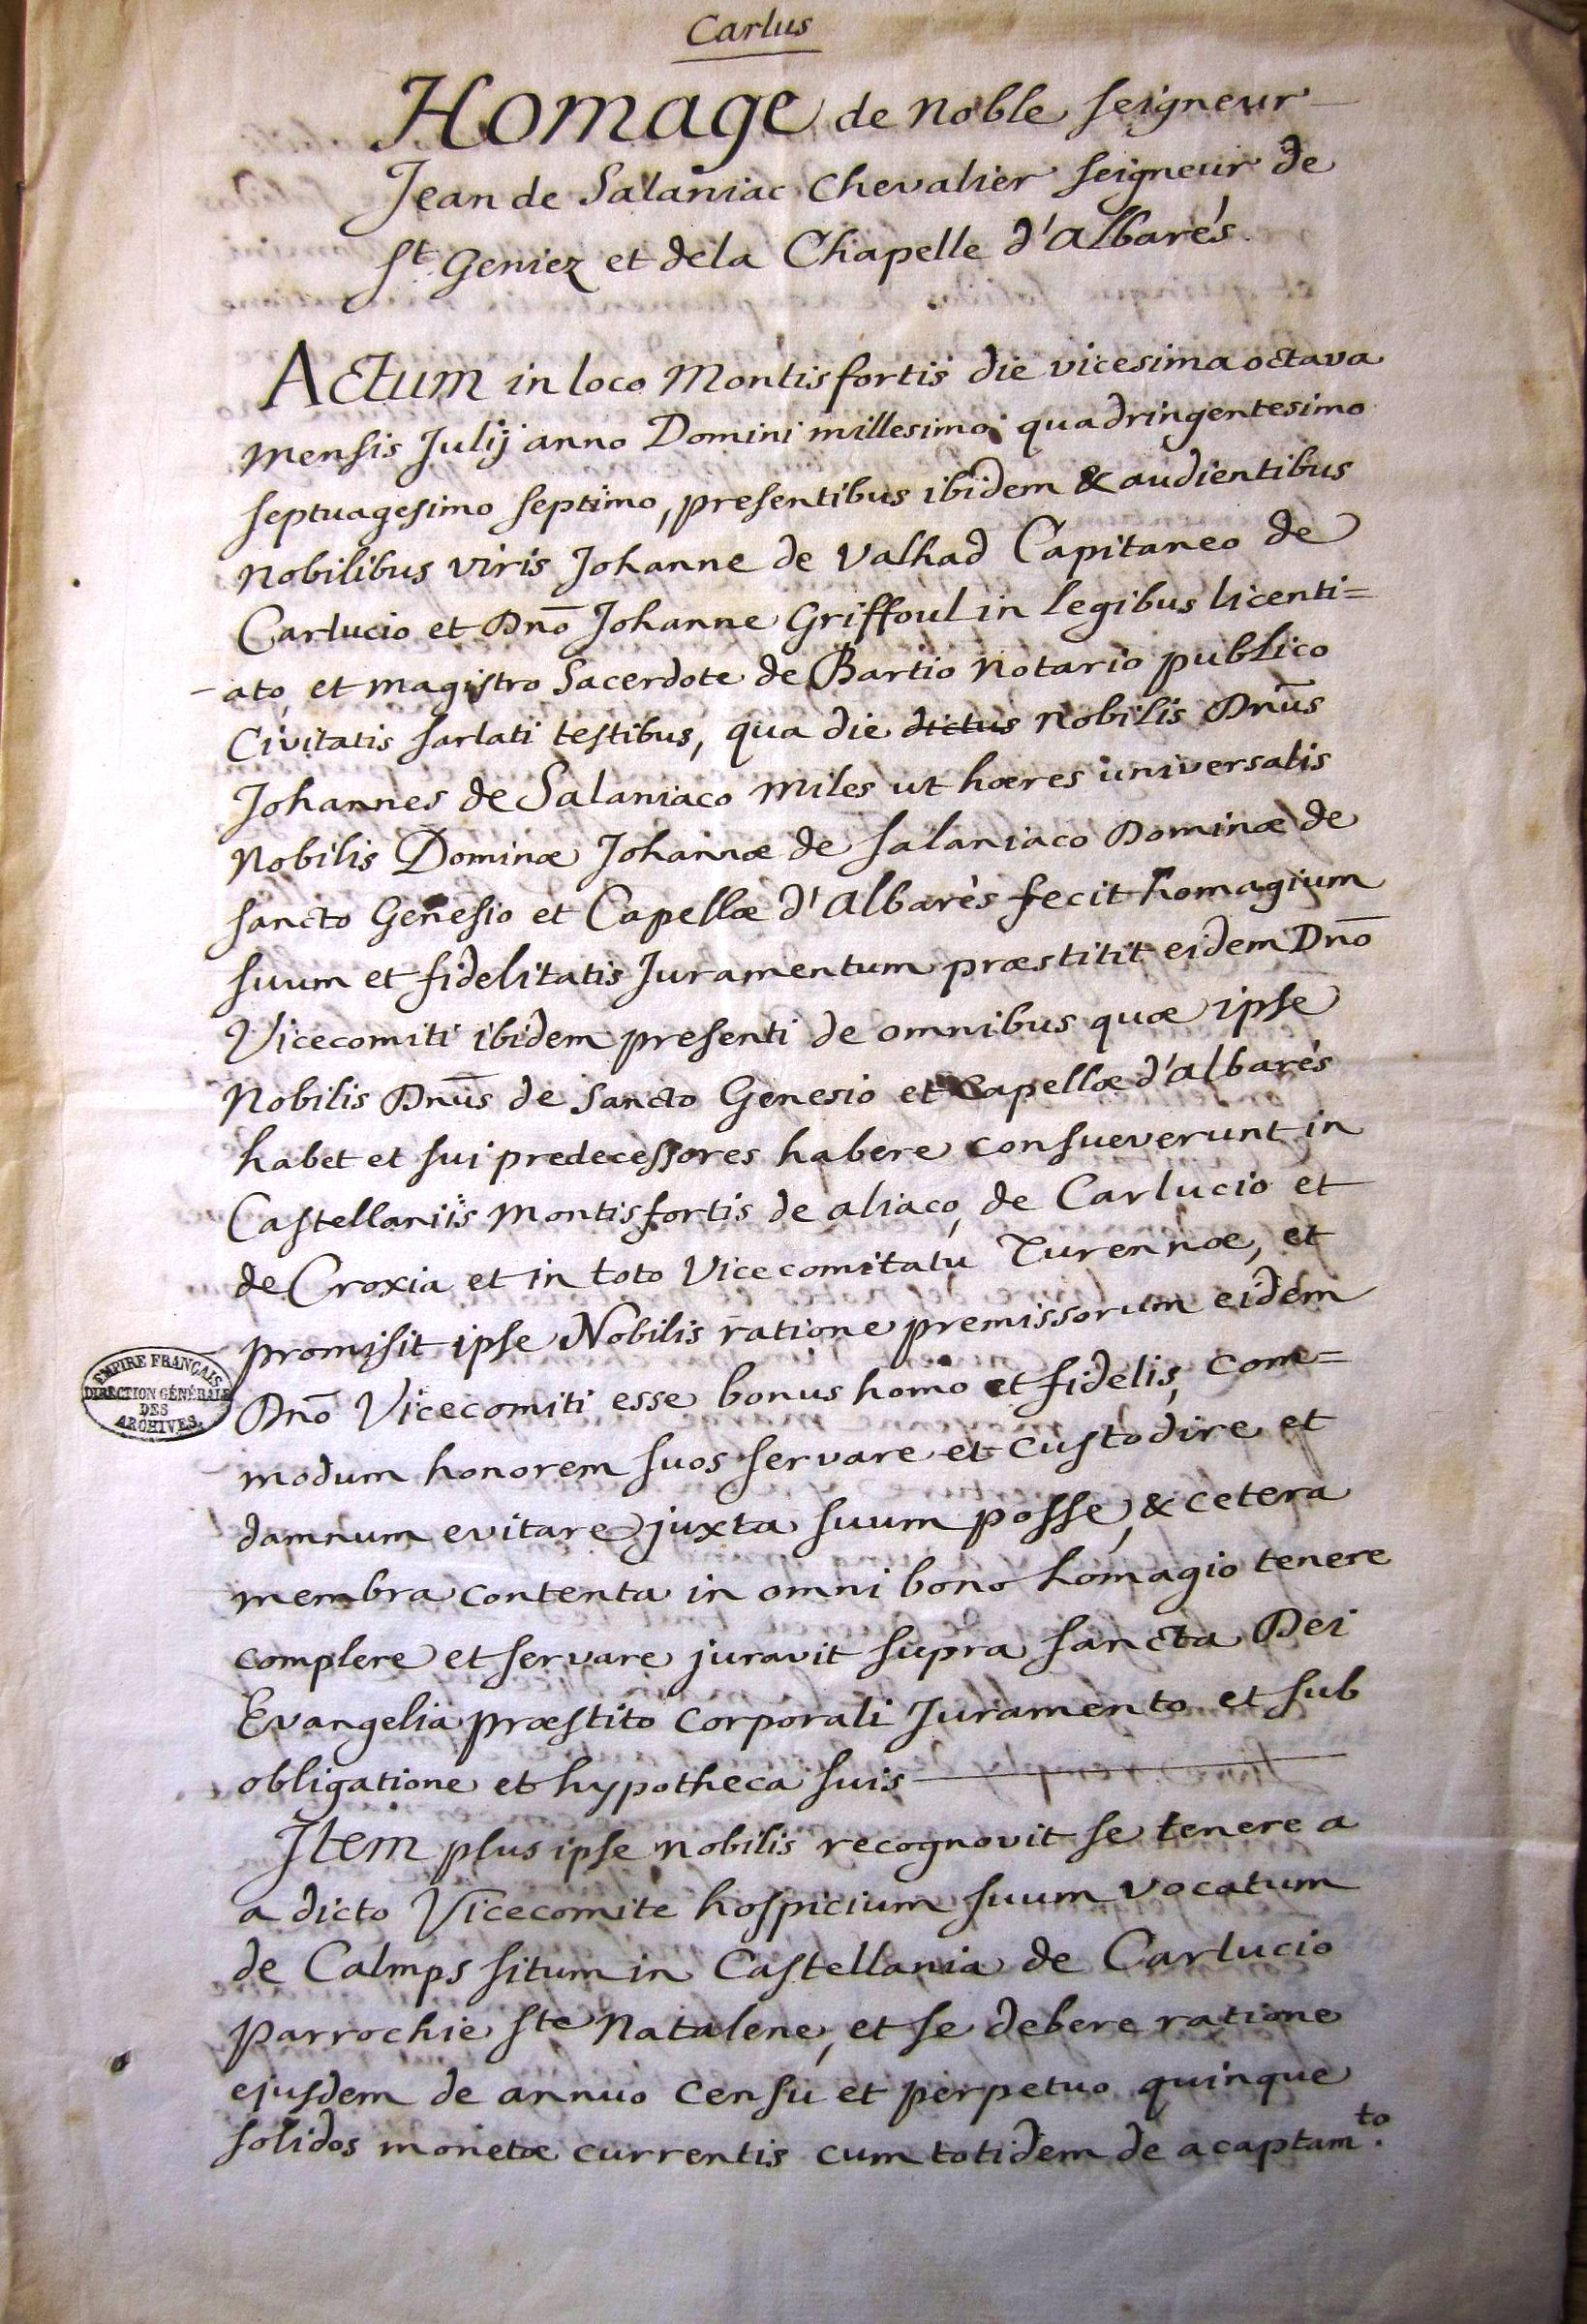 Carlus
Homage de Noble seigneur
Jean de Salaniac Chevalier seigneur de
St. Geniez et dela Chapelle d'Albarés.
Actum in loco Montisfortis die vicesima octava
mensis Julij anno Domini millesimo quadringentesimo
septuagesimo septimo, presentibus ibidem & audientibus
nobilibus viris Johanne de Valhad Capitaneo de
Carlucio et Dnō Johanne Griffoul in legibus licenti=
-ato, et magistro Sacerdote de Bartio Notario publico
Civitatis sarlati testibus, qua die dictus Nobilis Dnūs
Johannes de Salaniaco Miles ut hæres universalis
Nobilis Dominæ Johannæ de salaniaco Dominæ de
sancto Genesio et Capellæ d'Albarès fecit homagium
suum et fidelitatis Juramentum præstitit eidem Dnō
Vicecomiti ibidem presenti de omnibus quæ ipse
Nobilis Dnūs de Sancto Genesio et Capellæ d'albarés
habet et sui predecessores habere consueverunt in
Castellaniis Montisfortis de aliaco, de Carlucio et
de Croxia et in toto Vicecomitatu Turennæ, et
promisit ipse Nobilis ratione premissorum eidem
Dnō Vicecomiti esse bonus homo et fidelis, com=
modum honorem suos servare et custodire et
damnum evitare juxta suum posse, & cetera
membra contenta in omni bono homagio tenere
complere et servare juravit supra sancta Dei
Evangelia præstito corporali Juramento et sub
obligatione et hypotheca suis
Item plus ipse nobilis recognovit se tenere a
a dicto Vicecomite hospicium suum vocatum
de Calmps situm in Castellania de Carlucio
Parrochie Ste Natalene, et se debere ratione
ejusdem de annuo censu et perpetuo quinque
solidos monetæ currentis cum totidem de acaptam.to
EMPIRE FRANÇAIS
DIRECTION GÉNÉRALE
DES
ARCHIVES.